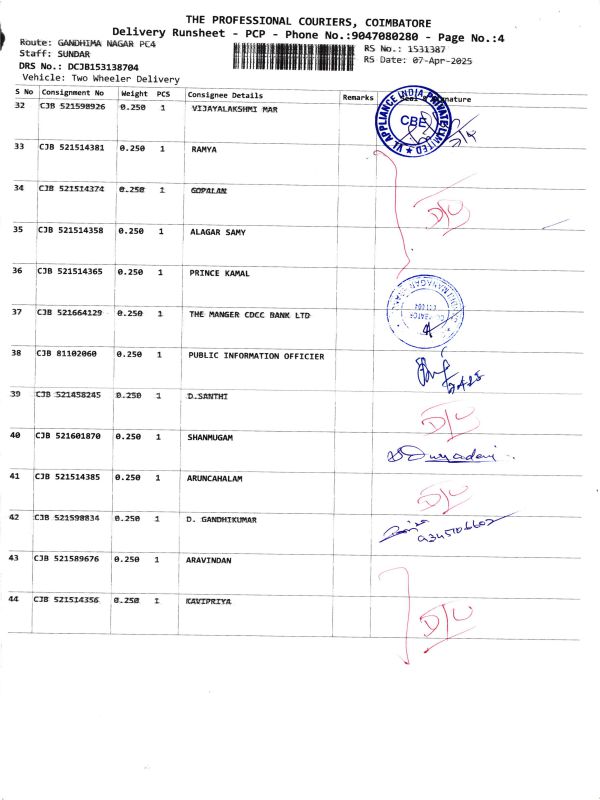 THE PROFESSIONAL COURIERS, COIMBATORE
Delivery Runsheet - PCP - Phone No.:9047080280 - Page No.:4
Route: GANDHIMA NAGAR PC4 RS No.: 1531387
Staff: SUNDAR RS Date: 07-Apr-2025
DRS No.: DCJB153138704
Vehicle: Two Wheeler Delivery
S No Consignment No Weight PCS Consignee Details Remarks Seal & Signature
32 CJB 521598926 0.250 1 VIJAYALAKSHMI MAR
VL APPLIANCE INDIA PRIVATE LIMITED
CBE
33 CJB 521514381 0.250 1 RAMYA
34 CJB 521514374 0.250 1 GOPALAN
D/L
35 CJB 521514358 0.250 1 ALAGAR SAMY
36 CJB 521514365 0.250 1 PRINCE KAMAL
37 CJB 521664129 0.250 1 THE MANGER CDCC BANK LTD
38 CJB 81102060 0.250 1 PUBLIC INFORMATION OFFICIER
39 CJB 521458245 0.250 1 D.SANTHI
D/L
40 CJB 521601870 0.250 1 SHANMUGAM
41 CJB 521514385 0.250 1 ARUNCAHALAM
D/L
42 CJB 521598834 0.250 1 D. GANDHIKUMAR
43 CJB 521589676 0.250 1 ARAVINDAN
44 CJB 521514356 0.250 1 KAVIPRIYA
D/L